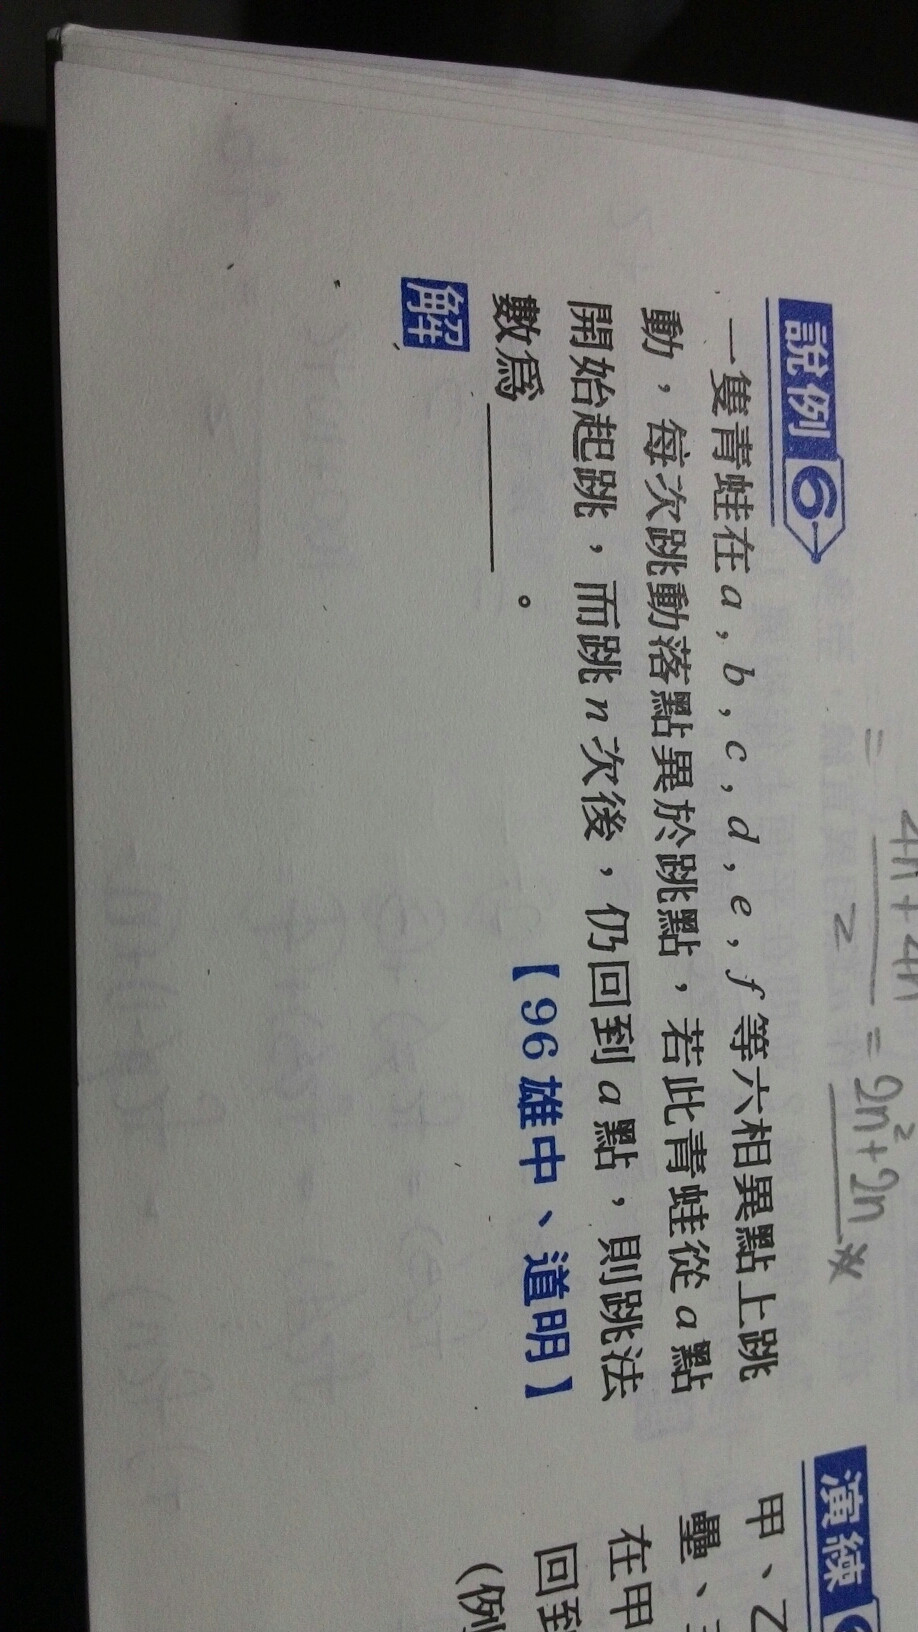 4n+4n
= ― = 2n²+2n ※
2
說例6
一隻青蛙在a,b,c,d,e,f等六相異點上跳
動,每次跳動落點異於跳點,若此青蛙從a點
開始起跳,而跳n次後,仍回到a點,則跳法
數為______。
【96雄中、道明】
解
演練
甲、乙
壘、
在甲
回到
(例